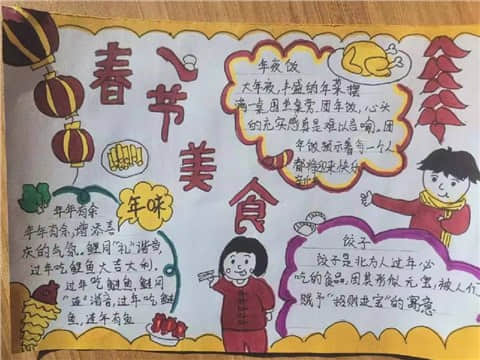 春节美食
年夜饭
大年夜,丰盛的年菜摆
满一桌,围坐桌旁,团年饭,心头
的充实感真是难以言喻。团
年饭预示着每一个人
都将迎来快乐
年味
年年有余
年年有余,增添喜
庆的气氛。鲤同"礼"谐音,
过年吃鲤鱼大吉大利,
过年吃鲢鱼,鲢同
"连"谐音,过年吃鲢
鱼,连年有鱼
饺子
饺子是北方人过年必
吃的食品,因其形似元宝,被人们
赋予"招财进宝"的寓意